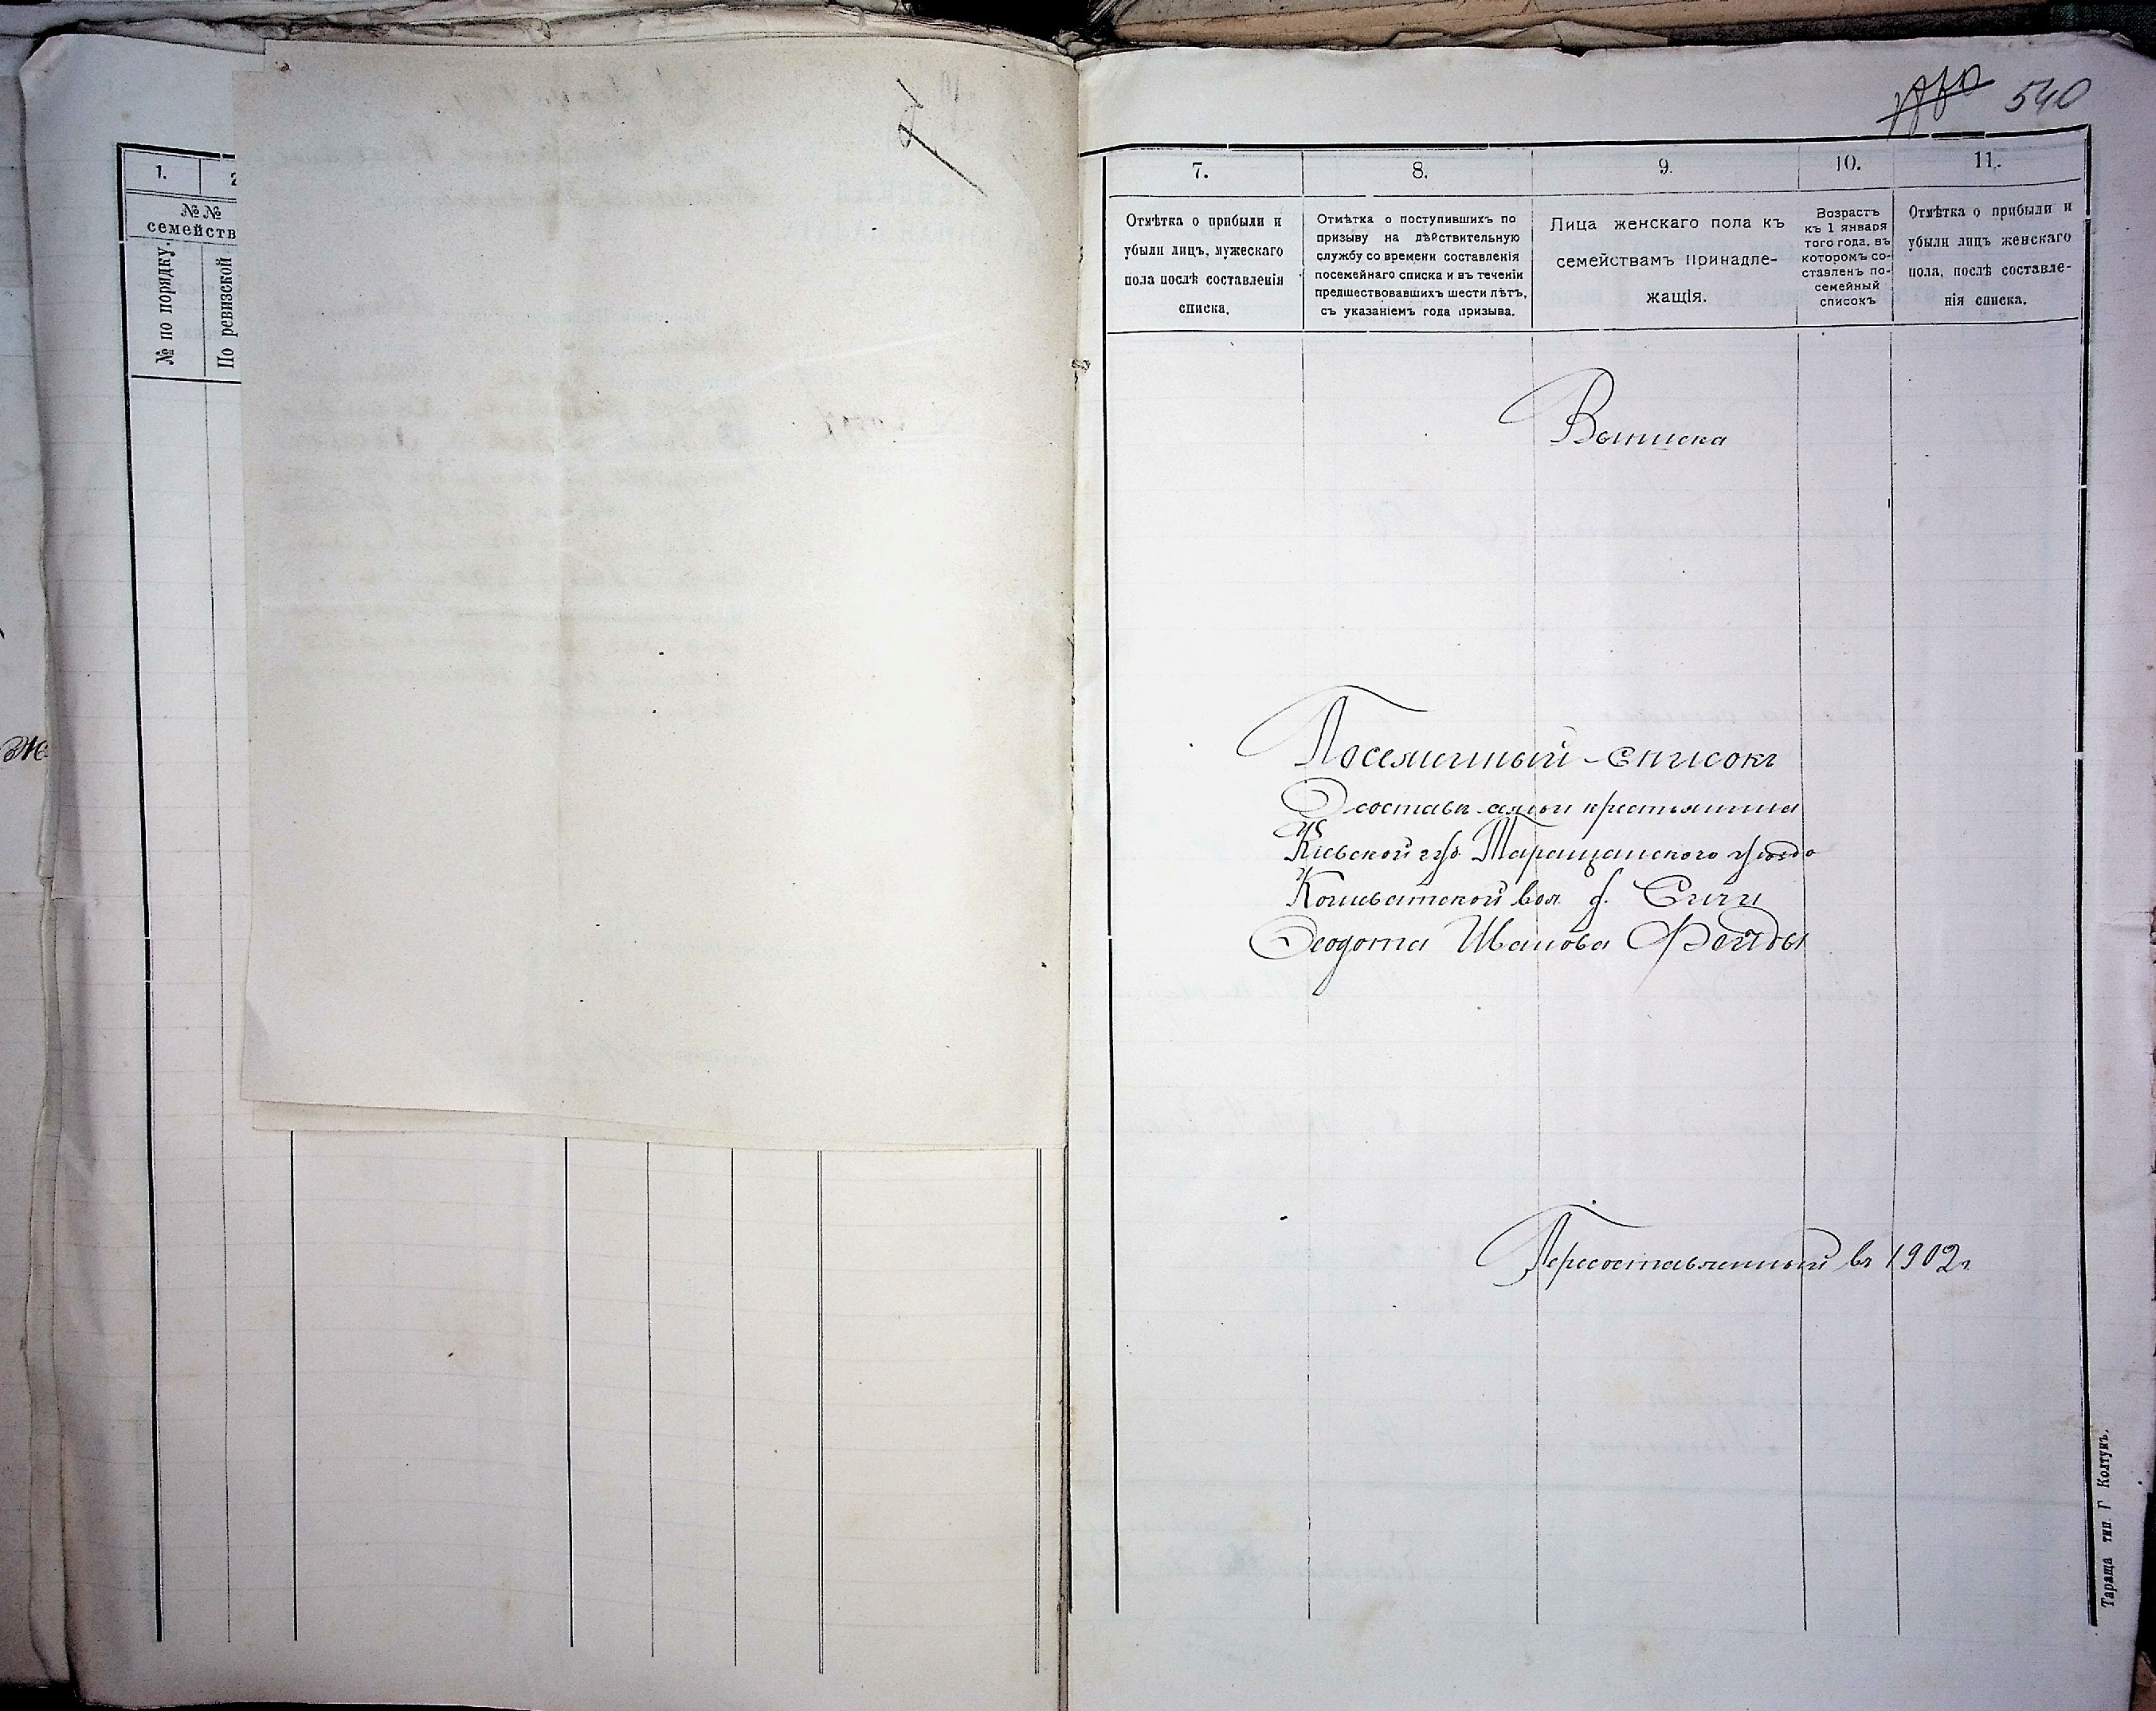 1.
№№
семействъ
№ по порядку.
По ревизской
540
7.
8.
9.
10.
11.
Отмѣтка о прибыли и
убыли лицъ, мужескаго
пола послѣ составленія
списка.
Отмѣтка о поступившихъ по
призыву на дѣйствительную
службу со времени составленія
посемейнаго списка и въ теченіи
предшествовавшихъ шести лѣтъ,
съ указаніемъ года призыва.
Лица женскаго пола къ
семействамъ принадле-
жащія.
Возрастъ
къ 1 января
того года, въ
которомъ со-
ставленъ по-
семейный
списокъ
Отмѣтка о прибыли и
убыли лицъ женскаго
пола, послѣ составле-
нія списка.
Выписка
Посемейный-списокъ
О составѣ семьи крестьянина
Кіевской губ. Таращанского уѣзда
Кошеватской вол. д. Сичи
Ѳеодота Иванова
Пересоставленный въ 1902 г.
Тараща тип. Г Колтунъ.